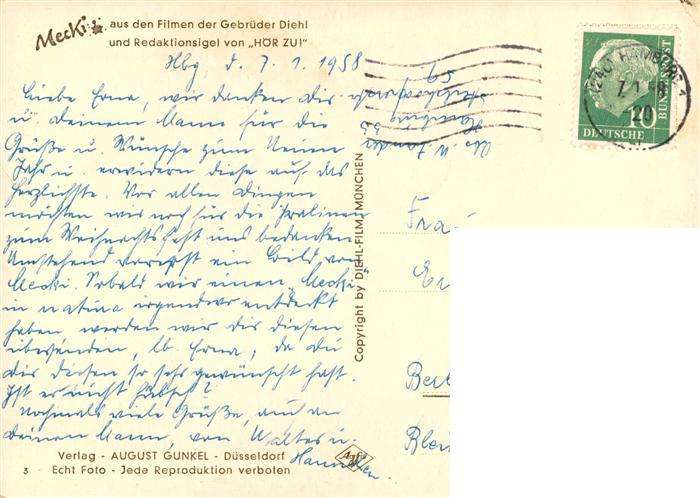 Mecki aus den Filmen der Gebrüder Diehl
und Redaktionsigel von „HÖR ZU!"
Hbg d. 7.1.1958
Liebe Erna, wir danken dir
u. deinem Mann für die
Grüße u. Wünsche zum Neuen
Jahr u. erwidern diese auf das
Herzlichste. Vor allen Dingen
möchten wir noch für die Pralinen
zum Weihnachtsfest uns bedanken
Umstehend ein Bild von
Mecki. Sobald wir einen „Mecki"
in natura irgendwo entdeckt
haben werden wir dir diesen
übersenden, lb. Erna, da du
dir diesen so sehr gewünscht hast.
Ist er nicht hübsch?
Nochmals viele Grüße, auch an
deinen Mann, von Walter u.
Verlag - AUGUST GUNKEL - Düsseldorf
3 - Echt Foto - Jede Reproduktion verboten
Agfa
Copyright by DIEHL-FILM, MÜNCHEN
Hamburg
HAMBURG 1
7.1.58
20
DEUTSCHE
BUNDESPOST